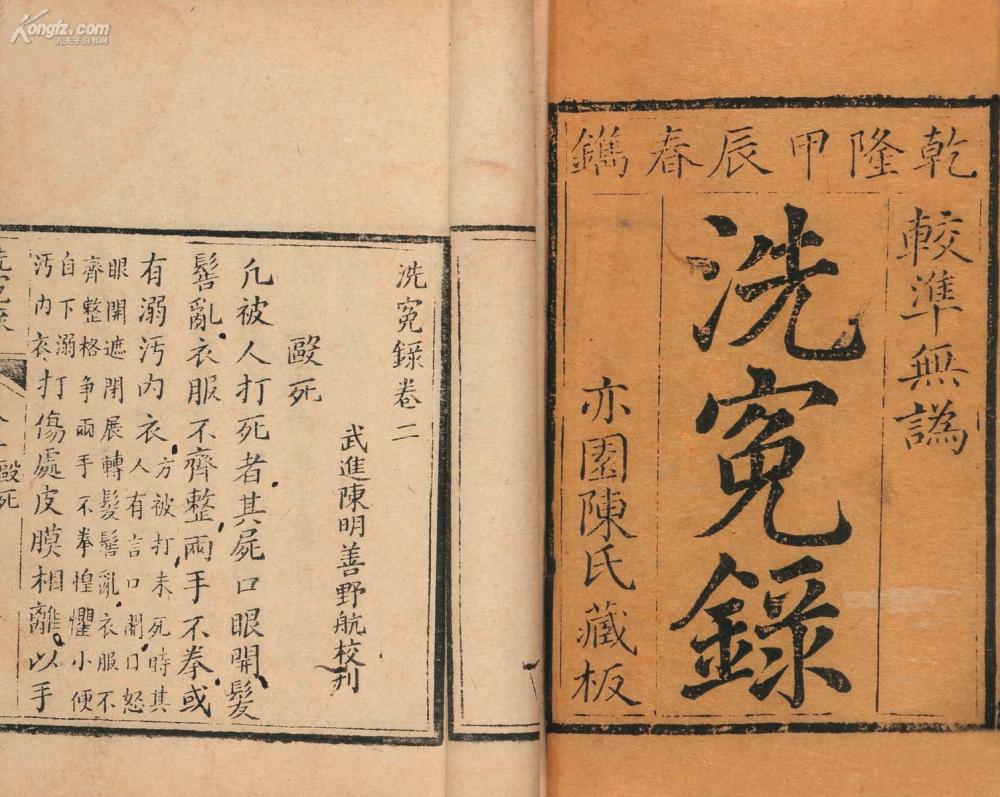 Kongfz.com
孔夫子旧书网
乾隆甲辰春鐫
較準無譌
洗寃錄
亦園陳氏藏板
洗寃錄卷二
武進陳明善野航校刊
毆死
凢被人打死者其屍口眼開髮
髻亂衣服不齊整兩手不拳或
有溺汚內衣方被打未死時其
人有言口開口怒
眼開遮閉展轉髮髻亂衣服不
齊整格争兩手不拳惶懼小便
自下溺
汚內衣打傷處皮膜相離以手
毆死